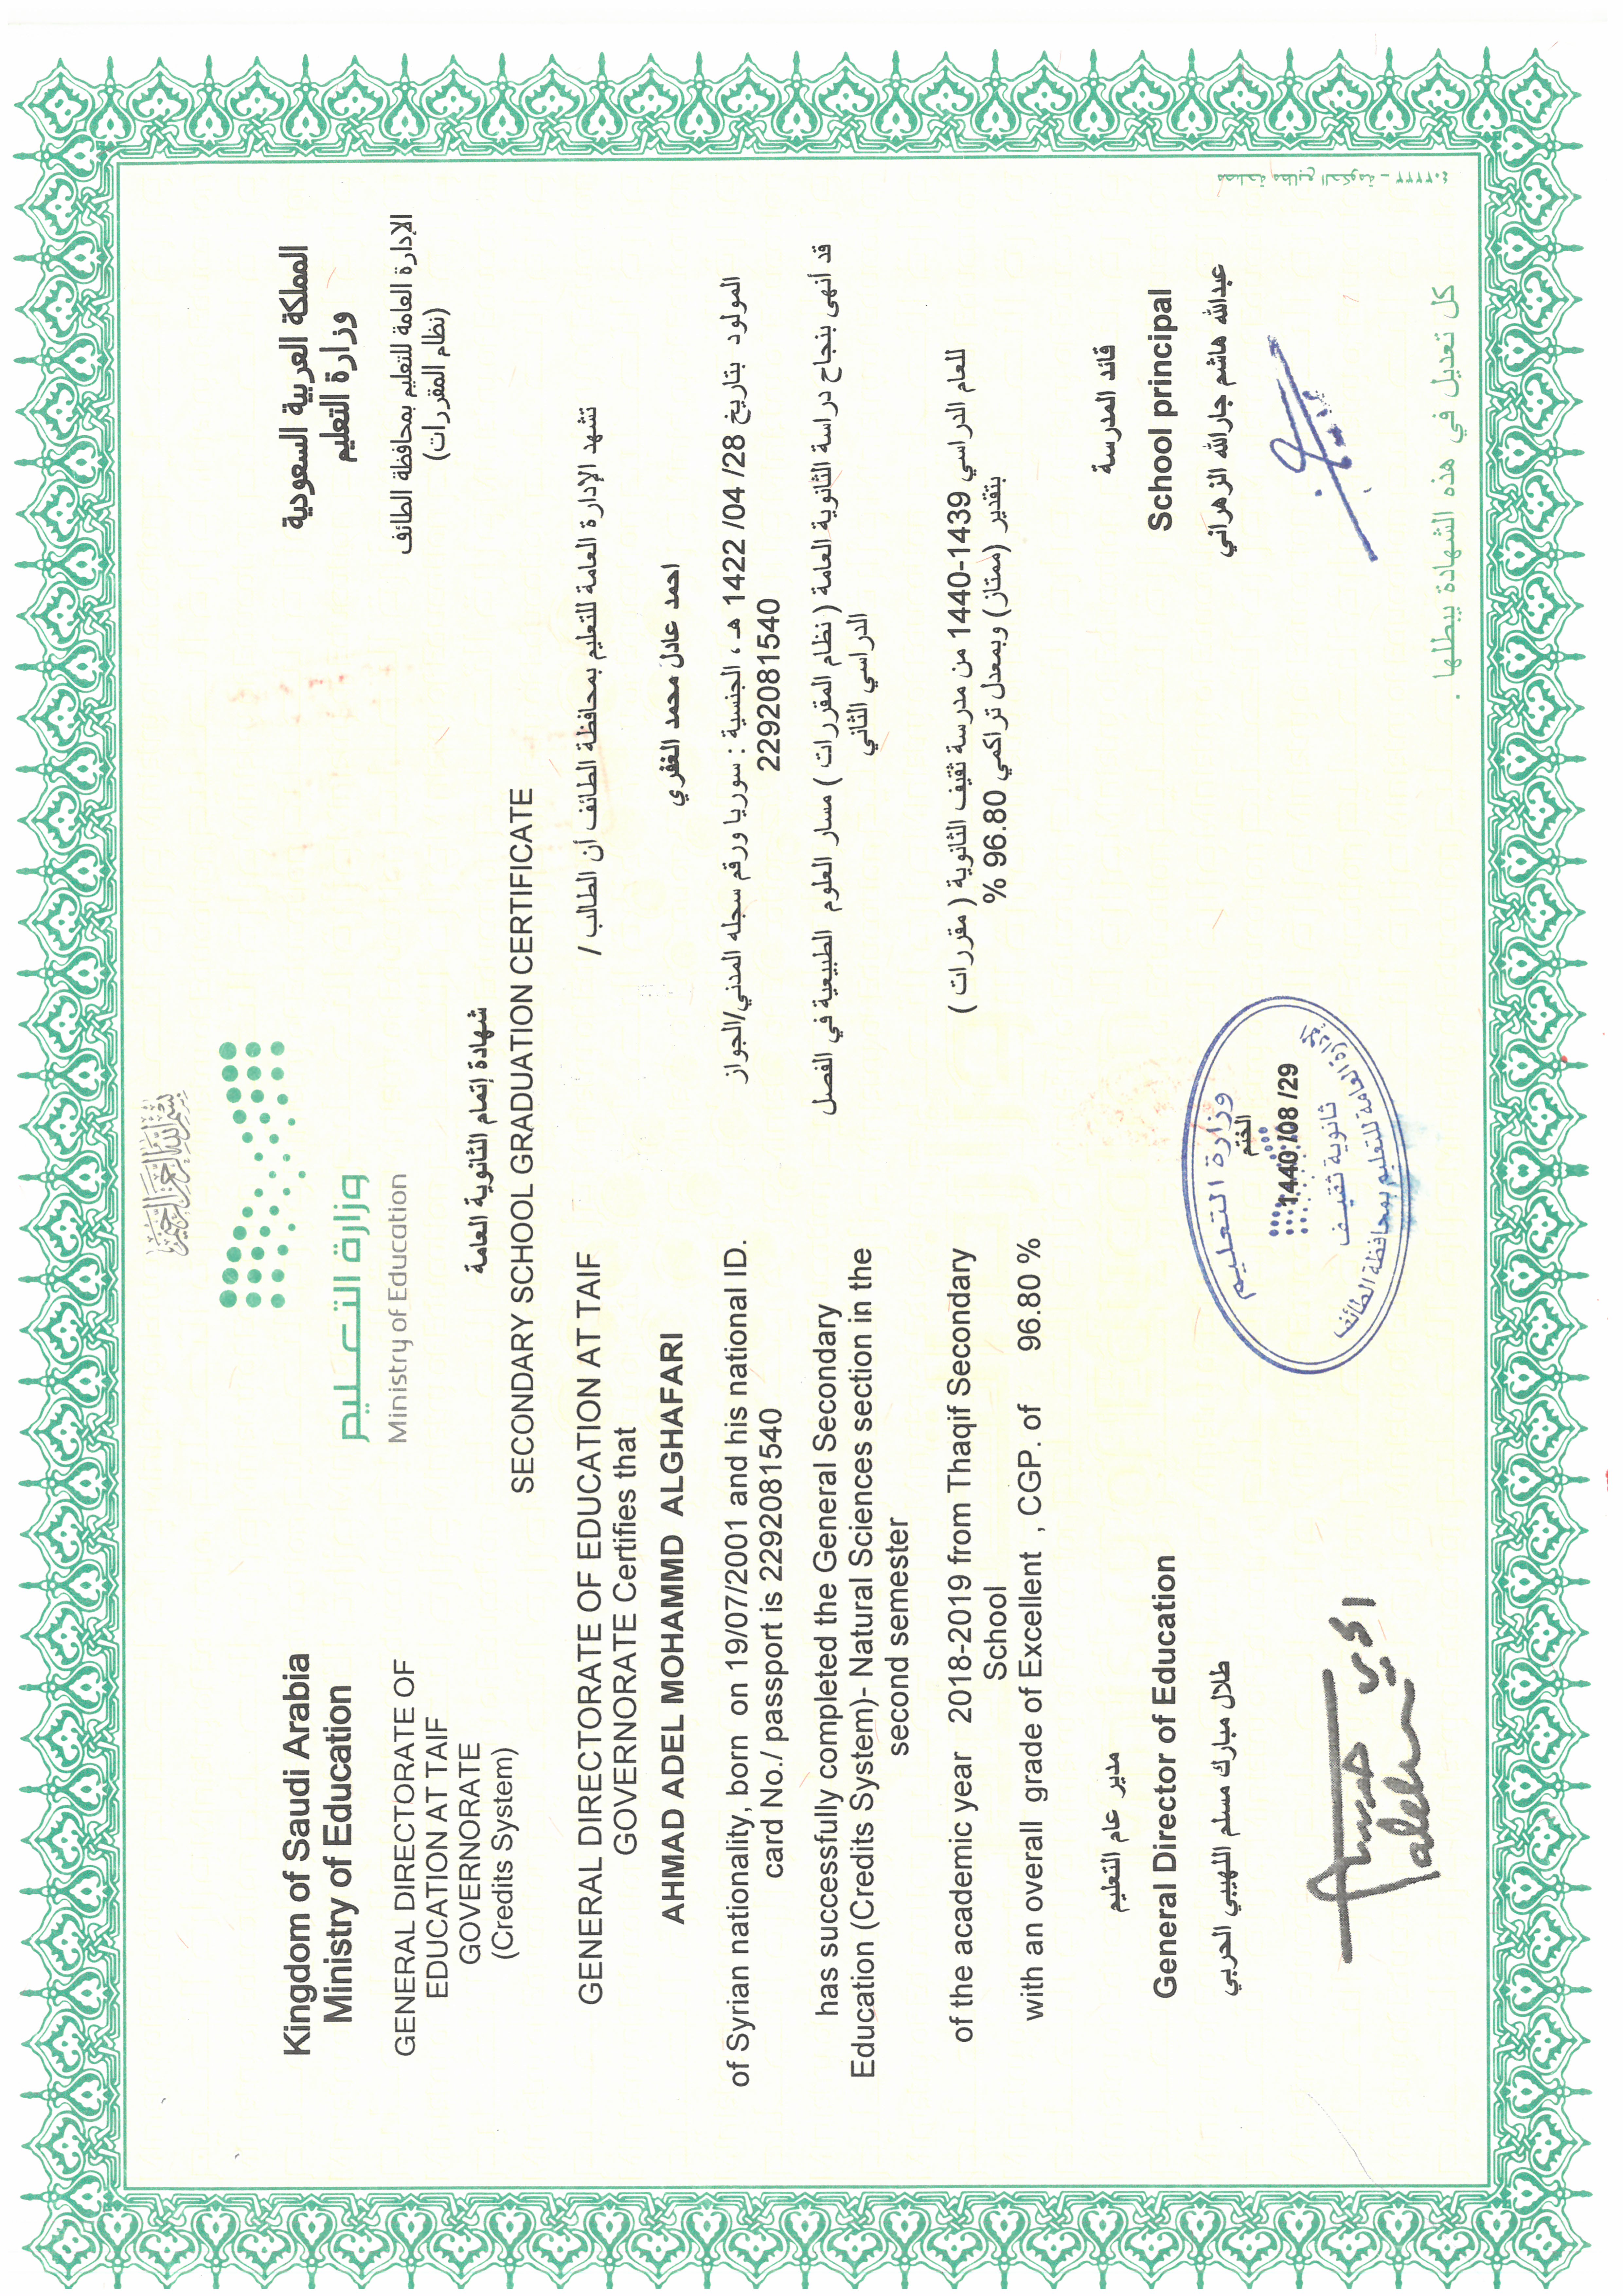 بسم الله الرحمن الرحيم
Kingdom of Saudi Arabia
Ministry of Education
GENERAL DIRECTORATE OF
EDUCATION AT TAIF
GOVERNORATE
(Credits System)
وزارة التعليم
Ministry of Education
المملكة العربية السعودية
وزارة التعليم
الإدارة العامة للتعليم بمحافظة الطائف
(نظام المقررات)
شهادة إتمام الثانوية العامة
SECONDARY SCHOOL GRADUATION CERTIFICATE
GENERAL DIRECTORATE OF EDUCATION AT TAIF
GOVERNORATE Certifies that
AHMAD ADEL MOHAMMD ALGHAFARI
of Syrian nationality, born on 19/07/2001 and his national ID.
card No./ passport is 2292081540
has successfully completed the General Secondary
Education (Credits System)- Natural Sciences section in the
second semester
of the academic year 2018-2019 from Thaqif Secondary
School
with an overall grade of Excellent , CGP. of 96.80 %
تشهد الإدارة العامة للتعليم بمحافظة الطائف أن الطالب /
احمد عادل محمد الغفري
المولود بتاريخ 28/ 04/ 1422 هـ ، الجنسية : سوريا ورقم سجله المدني/الجواز
2292081540
قد أنهى بنجاح دراسة الثانوية العامة ( نظام المقررات ) مسار العلوم الطبيعية في الفصل
الدراسي الثاني
للعام الدراسي 1439-1440 من مدرسة ثقيف الثانوية ( مقررات )
بتقدير (ممتاز) وبمعدل تراكمي 96.80 %
مدير عام التعليم
General Director of Education
طلال مبارك مسلم اللهيبي الحربي
وزارة التعليم
الختم
1440/08/29
ثانوية ثقيف
الإدارة العامة للتعليم بمحافظة الطائف
قائد المدرسة
School principal
عبدالله هاشم جارالله الزهراني
كل تعديل في هذه الشهادة يبطلها .
مصلحة مطابع الحكومة - ٤٠٢٢٢٢